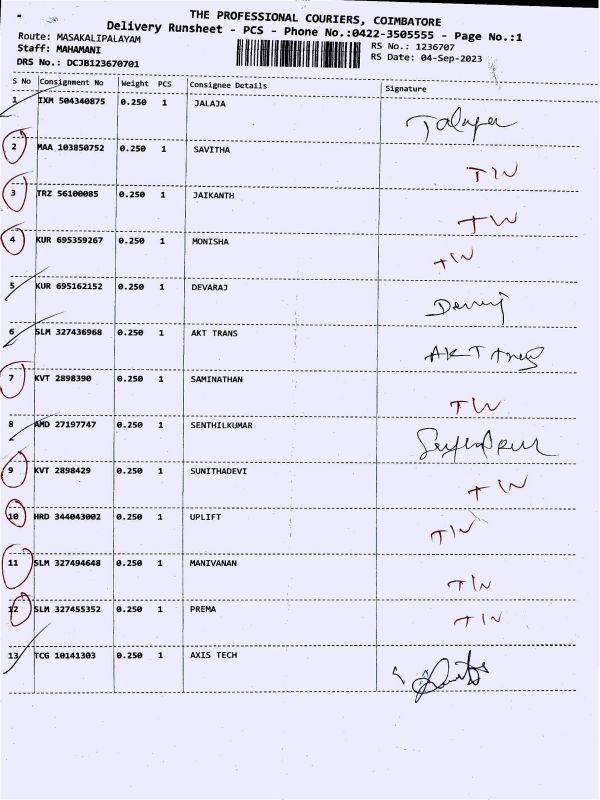 THE PROFESSIONAL COURIERS, COIMBATORE
Delivery Runsheet - PCS - Phone No.:0422-3505555 - Page No.:1
Route: MASAKALIPALAYAM
Staff: MAHAMANI
DRS No.: DCJB123670701
RS No.: 1236707
RS Date: 04-Sep-2023
S No Consignment No Weight PCS Consignee Details Signature
1 IXM 504340875 0.250 1 JALAJA Jalaja
2 MAA 103850752 0.250 1 SAVITHA TIN
3 TRZ 56100085 0.250 1 JAIKANTH TW
4 KUR 695359267 0.250 1 MONISHA TIN
5 KUR 695162152 0.250 1 DEVARAJ
6 SLM 327436968 0.250 1 AKT TRANS AKT
7 KVT 2898390 0.250 1 SAMINATHAN TW
8 AMD 27197747 0.250 1 SENTHILKUMAR
9 KVT 2898429 0.250 1 SUNITHADEVI TW
10 HRD 344043002 0.250 1 UPLIFT TIN
11 SLM 327494648 0.250 1 MANIVANAN TIN
12 SLM 327455352 0.250 1 PREMA TIN
13 TCG 10141303 0.250 1 AXIS TECH